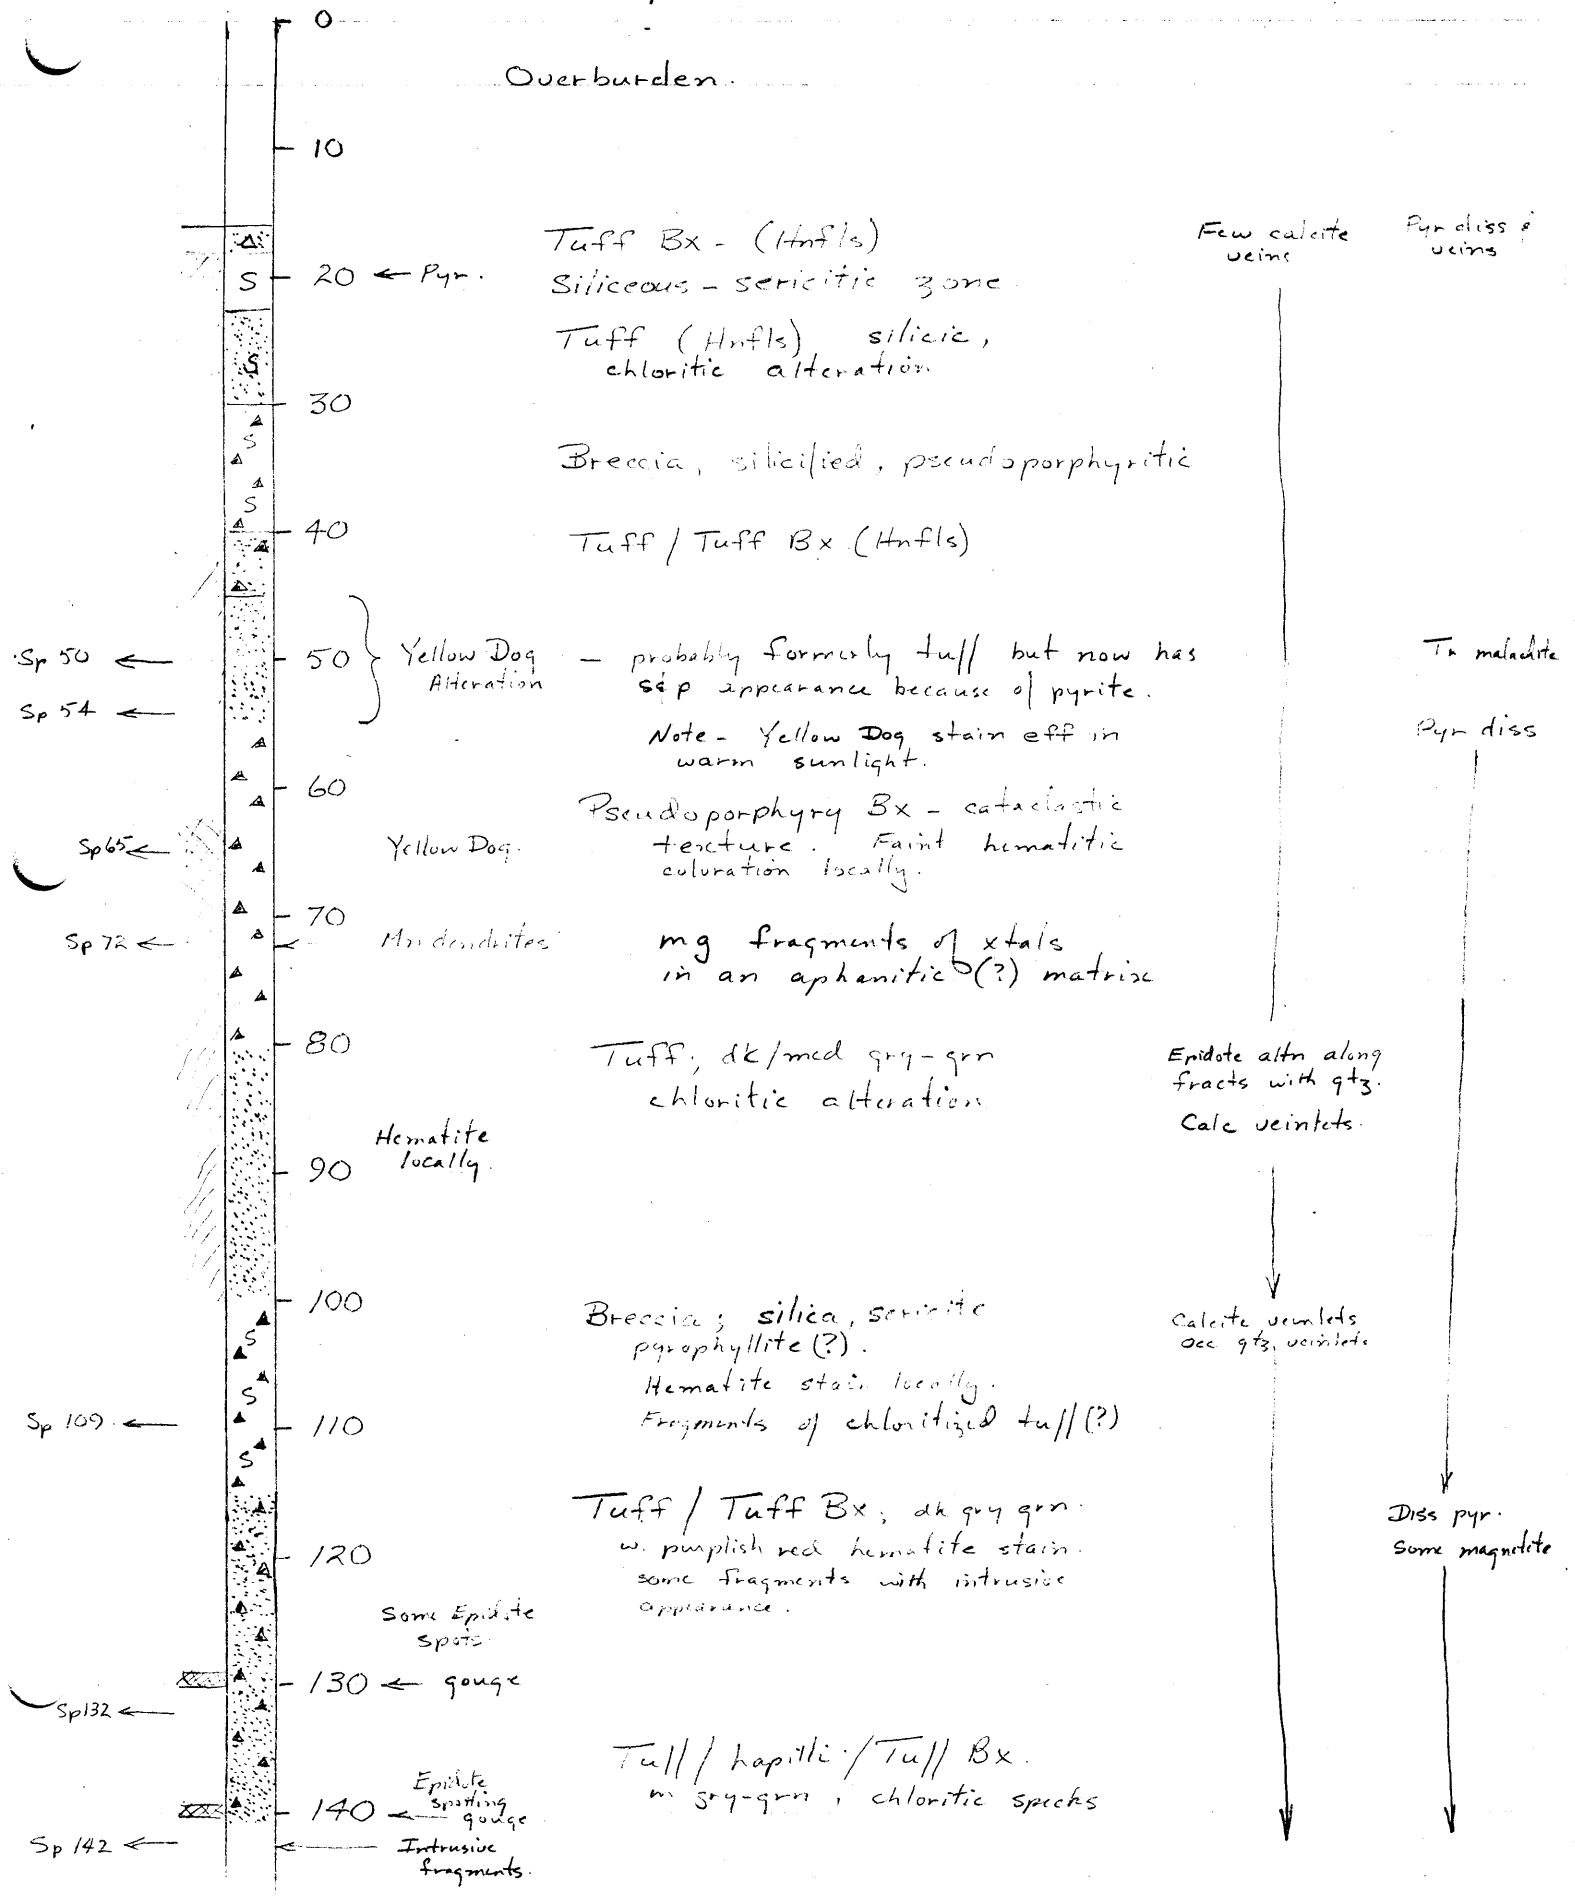 0
Overburden.
10
Tuff Bx - (Hnfls)
Few calcite
veins
Pyr diss &
veins
S
20 ← Pyr.
Siliceous - sericitic zone
Tuff (Hnfls) silicic,
chloritic alteration
S
30
S
Breccia, silicified, pseudoporphyritic
S
40
Tuff / Tuff Bx (Hnfls)
Sp 50 ←
50
Yellow Dog
Alteration
- probably formerly tuff but now has
s&p appearance because of pyrite.
Tr malachite
Sp 54 ←
Note - Yellow Dog stain eff in
warm sunlight.
Pyr diss
60
Pseudoporphyry Bx - cataclastic
texture. Faint hematitic
coluration locally.
Sp65 ←
Yellow Dog.
70
Sp 72 ←
← Mn dendrites
mg fragments of xtals
in an aphanitic (?) matrix
80
Tuff; dk/med gry-grn
chloritic alteration
Epidote altn along
fracts with qtz.
Calc veinlets.
Hematite
locally.
90
100
Breccia; silica, sericite
pyrophyllite (?).
Hematite stain locally.
Fragments of chloritized tuff (?)
Calcite veinlets
occ qtz, veinlets
S
S
Sp 109 ←
110
S
Tuff / Tuff Bx; dk gry grn.
w. purplish red hematite stain.
some fragments with intrusive
appearance.
Diss pyr.
Some magnetite
120
Some Epidote
spots
130 ← gouge
Sp132 ←
Tuff / Lapilli / Tuff Bx.
m gry-grn, chloritic specks
Epidote
spotting
140 ← gouge
Sp 142 ←
← Intrusive
fragments.